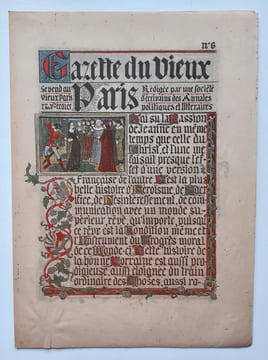 N°6
Gazette du Vieux
Paris
Se vend au
Vieux Paris
Rédigée par une société
d'écrivains des Annales
politiques et littéraires
J'ai su la Passion
de Jeanne en même
temps que celle du
Christ, et l'une me
faisait presque l'ef-
fet d'une version
Française de l'autre. C'est la plus
belle histoire d'héroïsme, de sacri-
fice, de désintéressement, de com-
munication avec un monde su-
périeur, rêvé, qu'importe, puisqu'
ce rêve est la condition même et
l'instrument du progrès moral
de ce monde-ci. Cette histoire de
la bonne Lorraine est aussi pro-
digieuse, aussi éloignée du train
ordinaire des choses, aussi ro-